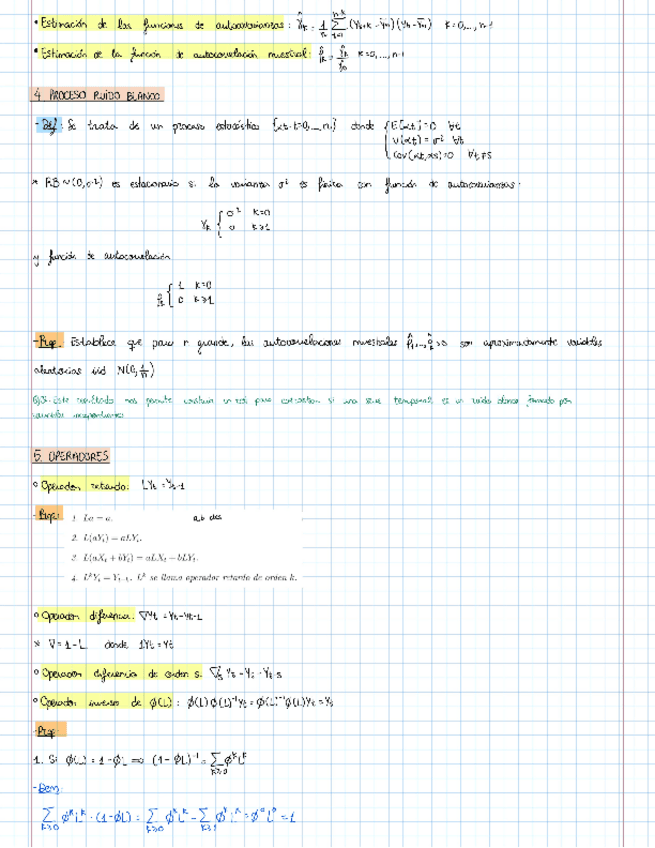 • Estimación de las funciones de autocovarianzas: γ̂ₖ = 1/n Σ_{t=1}^{n-k} (Yₜ₊ₖ - Ȳₙ)(Yₜ - Ȳₙ) k=0,...,n-1
• Estimación de la función de autocorrelación muestral: ρ̂ₖ = γ̂ₖ/γ̂₀ k=0,...,n-1
4. PROCESO RUIDO BLANCO
- Def: Se trata de un proceso estocástico {αt: t=0,...,n,} donde { E[αt]=0 ∀t
V(αt) = σ² ∀t
Cov(αt,αs)=0 ∀t≠s
* RB~(0,σ²) es estacionario si la varianza σ² es finita con función de autocovarianzas:
γₖ { σ² k=0
0 k≥1
y función de autocorrelación
{ 1 k=0
0 k≥1
- Prop: Establece que para n grande, las autocorrelaciones muestrales son aproximadamente variables
aleatorias iid N(0, 1/n)
Este resultado nos permite construir un test para contrastar si una serie temporal es un ruido blanco formado por
variables independientes
5. OPERADORES
○ Operador retardo: LYt = Yt-1
- Prop: 1. La = a. a,b ctes
2. L(aYt) = aLYt.
3. L(aXt + bYt) = aLXt + bLYt.
4. LᵏYt = Yt-k. Lᵏ se llama operador retardo de orden k.
○ Operador diferencia: ∇Yt = Yt-Yt-1
* ∇=1-L donde 1Yt=Yt
○ Operador diferencia de orden s: ∇s Yt = Yt - Yt-s
○ Operador inverso de ϕ(L): ϕ(L)ϕ(L)⁻¹Yt = ϕ(L)⁻¹ϕ(L)Yt = Yt
- Prop:
1. Si ϕ(L) = 1-ϕL ⇒ (1-ϕL)⁻¹ = Σ_{k≥0} ϕᵏLᵏ
- Dem:
Σ_{k≥0} ϕᵏLᵏ·(1-ϕL) = Σ_{k≥0} ϕᵏLᵏ - Σ_{k≥1} ϕᵏLᵏ = ϕ⁰L⁰ = 1